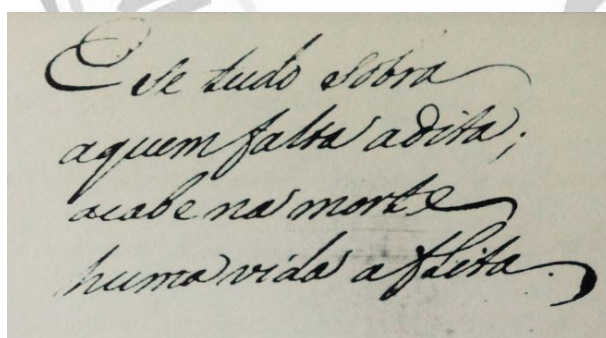 E se tudo sobra
aquem falta adita;
acabe na morte
huma vida aflita.